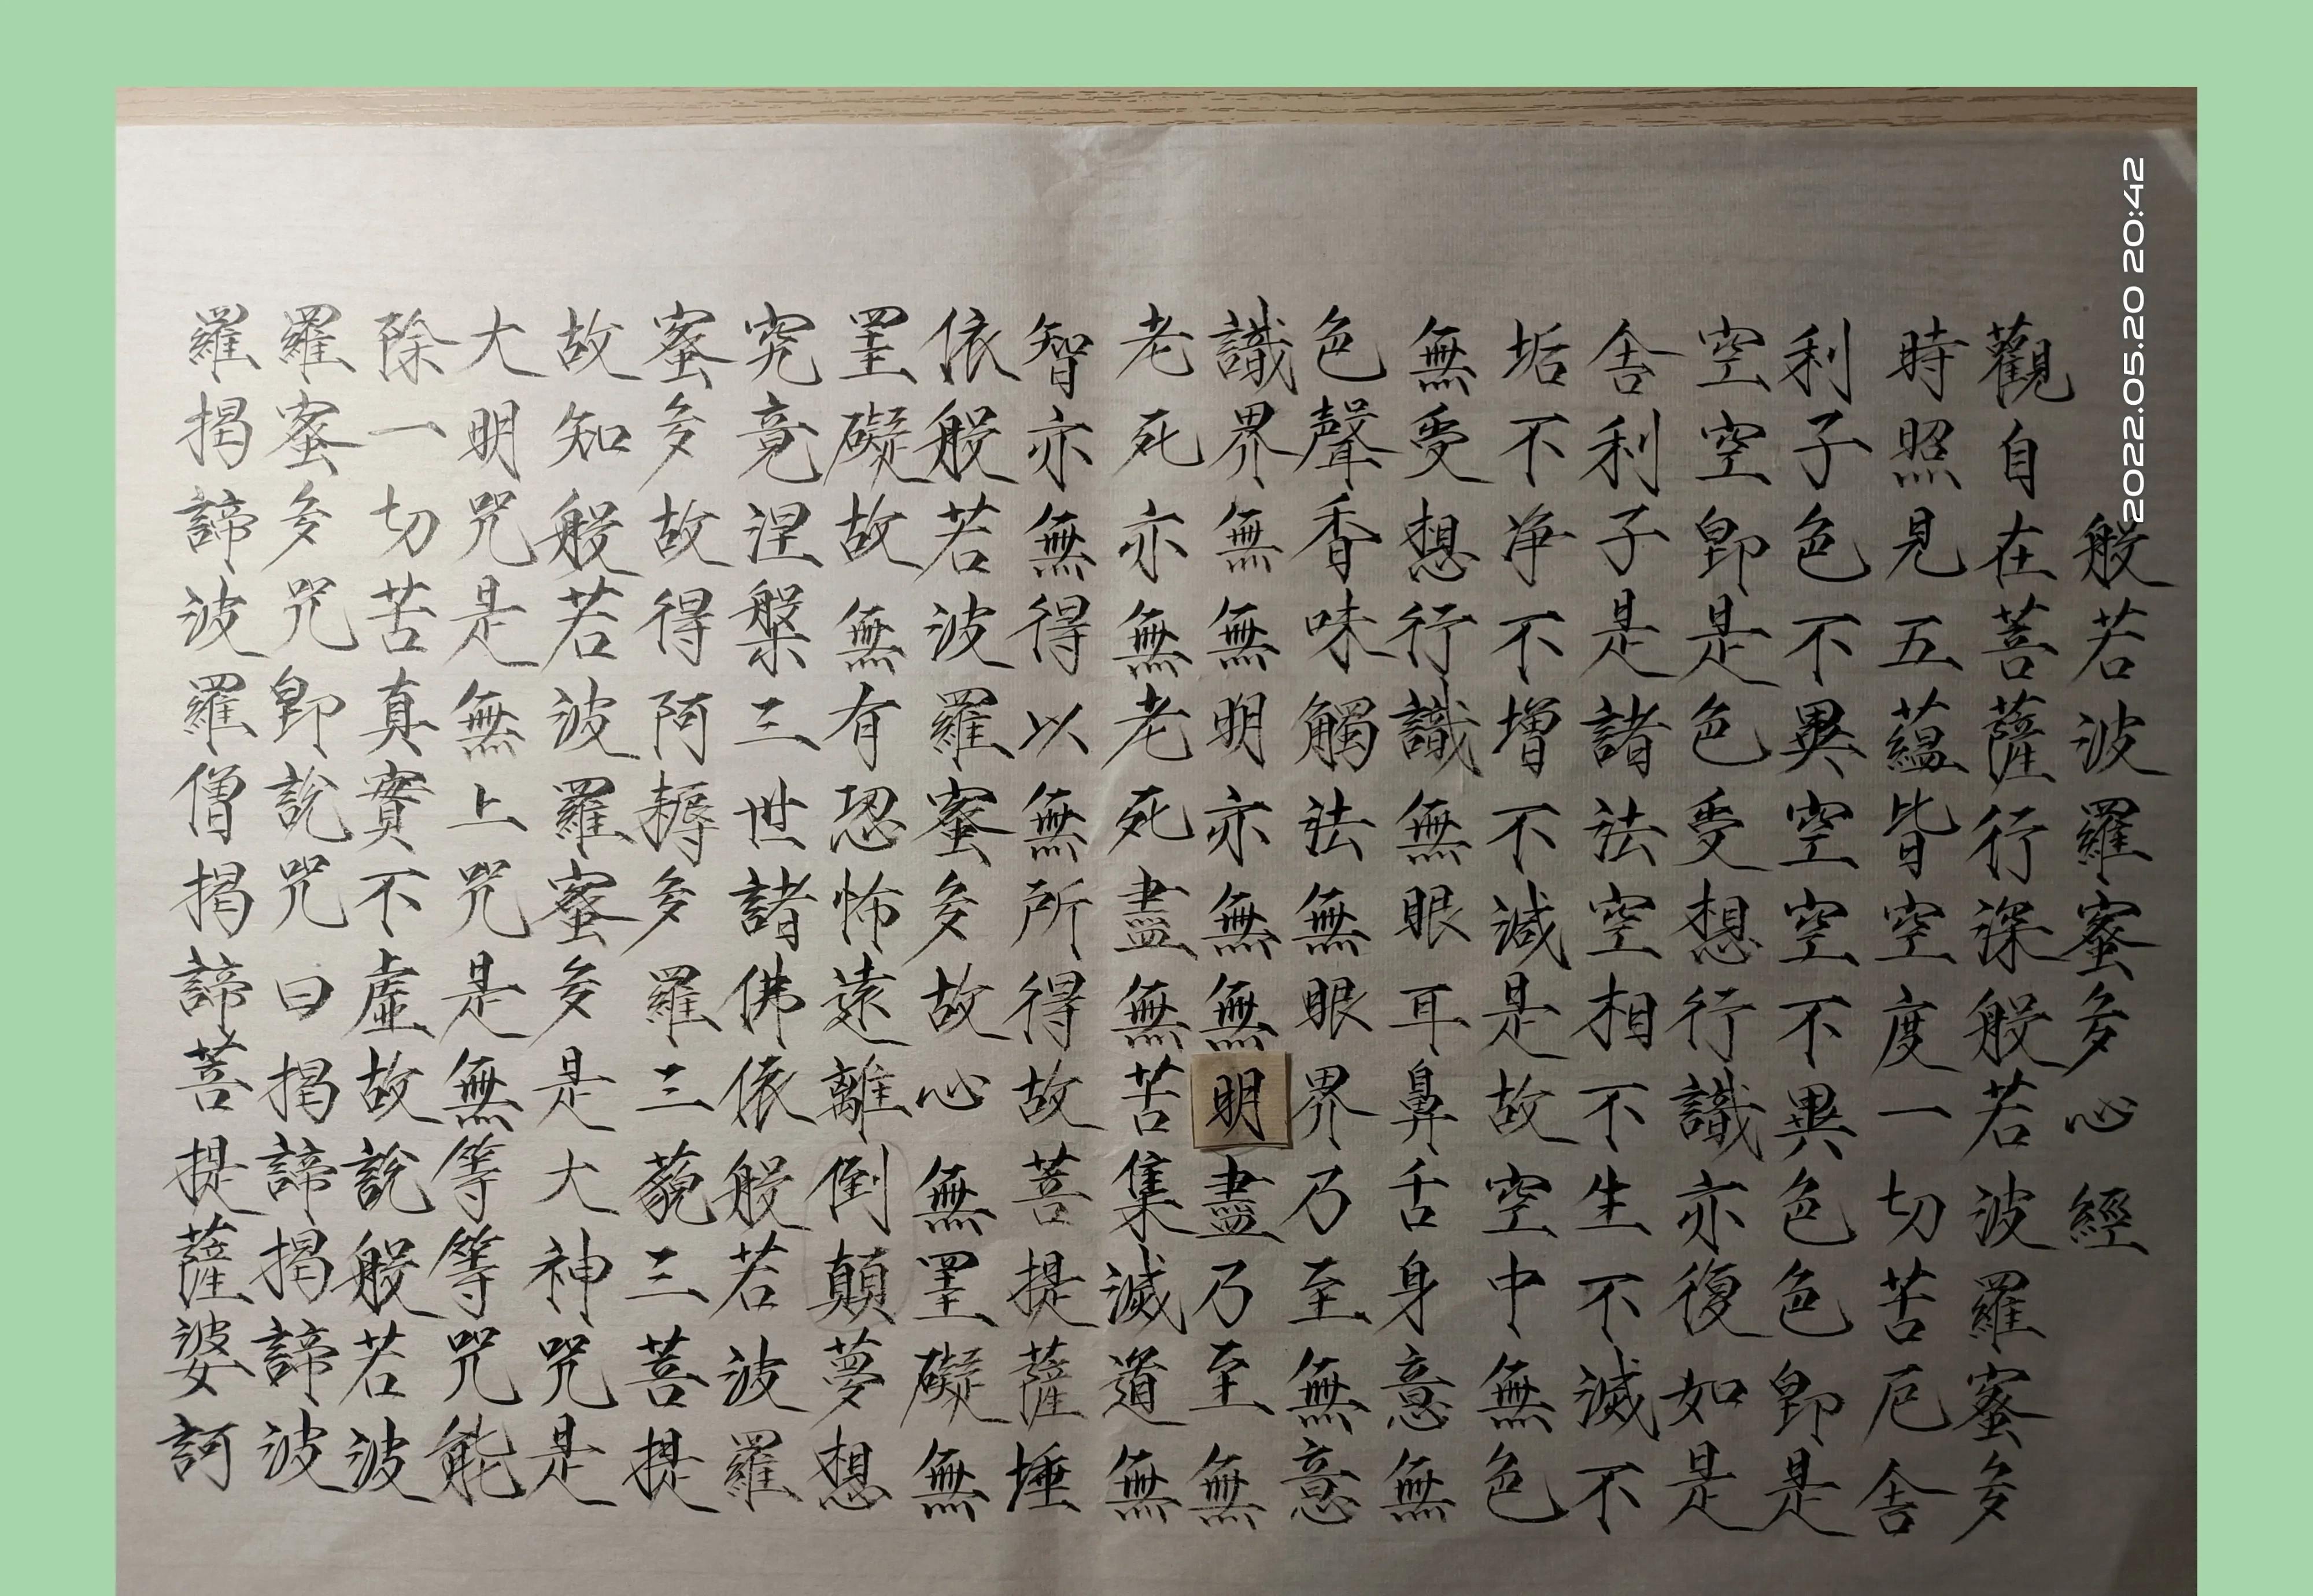 2022.05.20 20:42
般若波羅蜜多心經
觀自在菩薩行深般若波羅蜜多
時照見五蘊皆空度一切苦厄舍
利子色不異空空不異色色卽是
空空卽是色受想行識亦復如是
舍利子是諸法空相不生不滅不
垢不净不增不減是故空中無色
無受想行識無眼耳鼻舌身意無
色聲香味觸法無眼界乃至無意
識界無無明亦無無明盡乃至無
老死亦無老死盡無苦集滅道無
智亦無得以無所得故菩提薩埵
依般若波羅蜜多故心無罣礙無
罣礙故無有恐怖遠離倒顛夢想
究竟涅槃三世諸佛依般若波羅
蜜多故得阿耨多羅三藐三菩提
故知般若波羅蜜多是大神咒是
大明咒是無上咒是無等等咒能
除一切苦真實不虛故說般若波
羅蜜多咒卽說咒曰揭諦揭諦波
羅揭諦波羅僧揭諦菩提薩婆訶